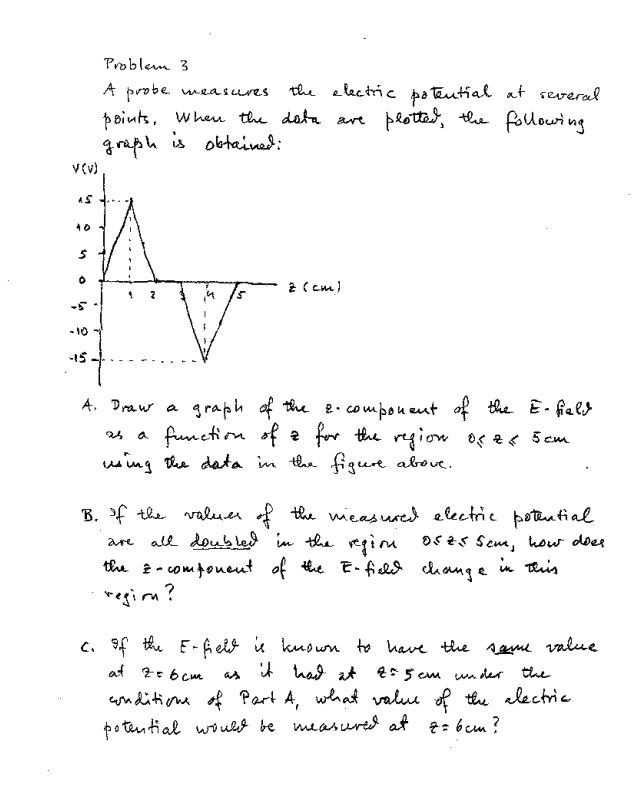 Problem 3
A probe measures the electric potential at several
points. When the data are plotted, the following
graph is obtained:
V(V)
15
10
5
0
1 2 3 4 5 z (cm)
-5
-10
-15
A. Draw a graph of the z-component of the E-field
as a function of z for the region 0≤ z ≤ 5cm
using the data in the figure above.
B. If the values of the measured electric potential
are all doubled in the region 0≤z≤5cm, how does
the z-component of the E-field change in this
region?
C. If the E-field is known to have the same value
at z=6cm as it had at z=5cm under the
conditions of Part A, what value of the electric
potential would be measured at z=6cm?